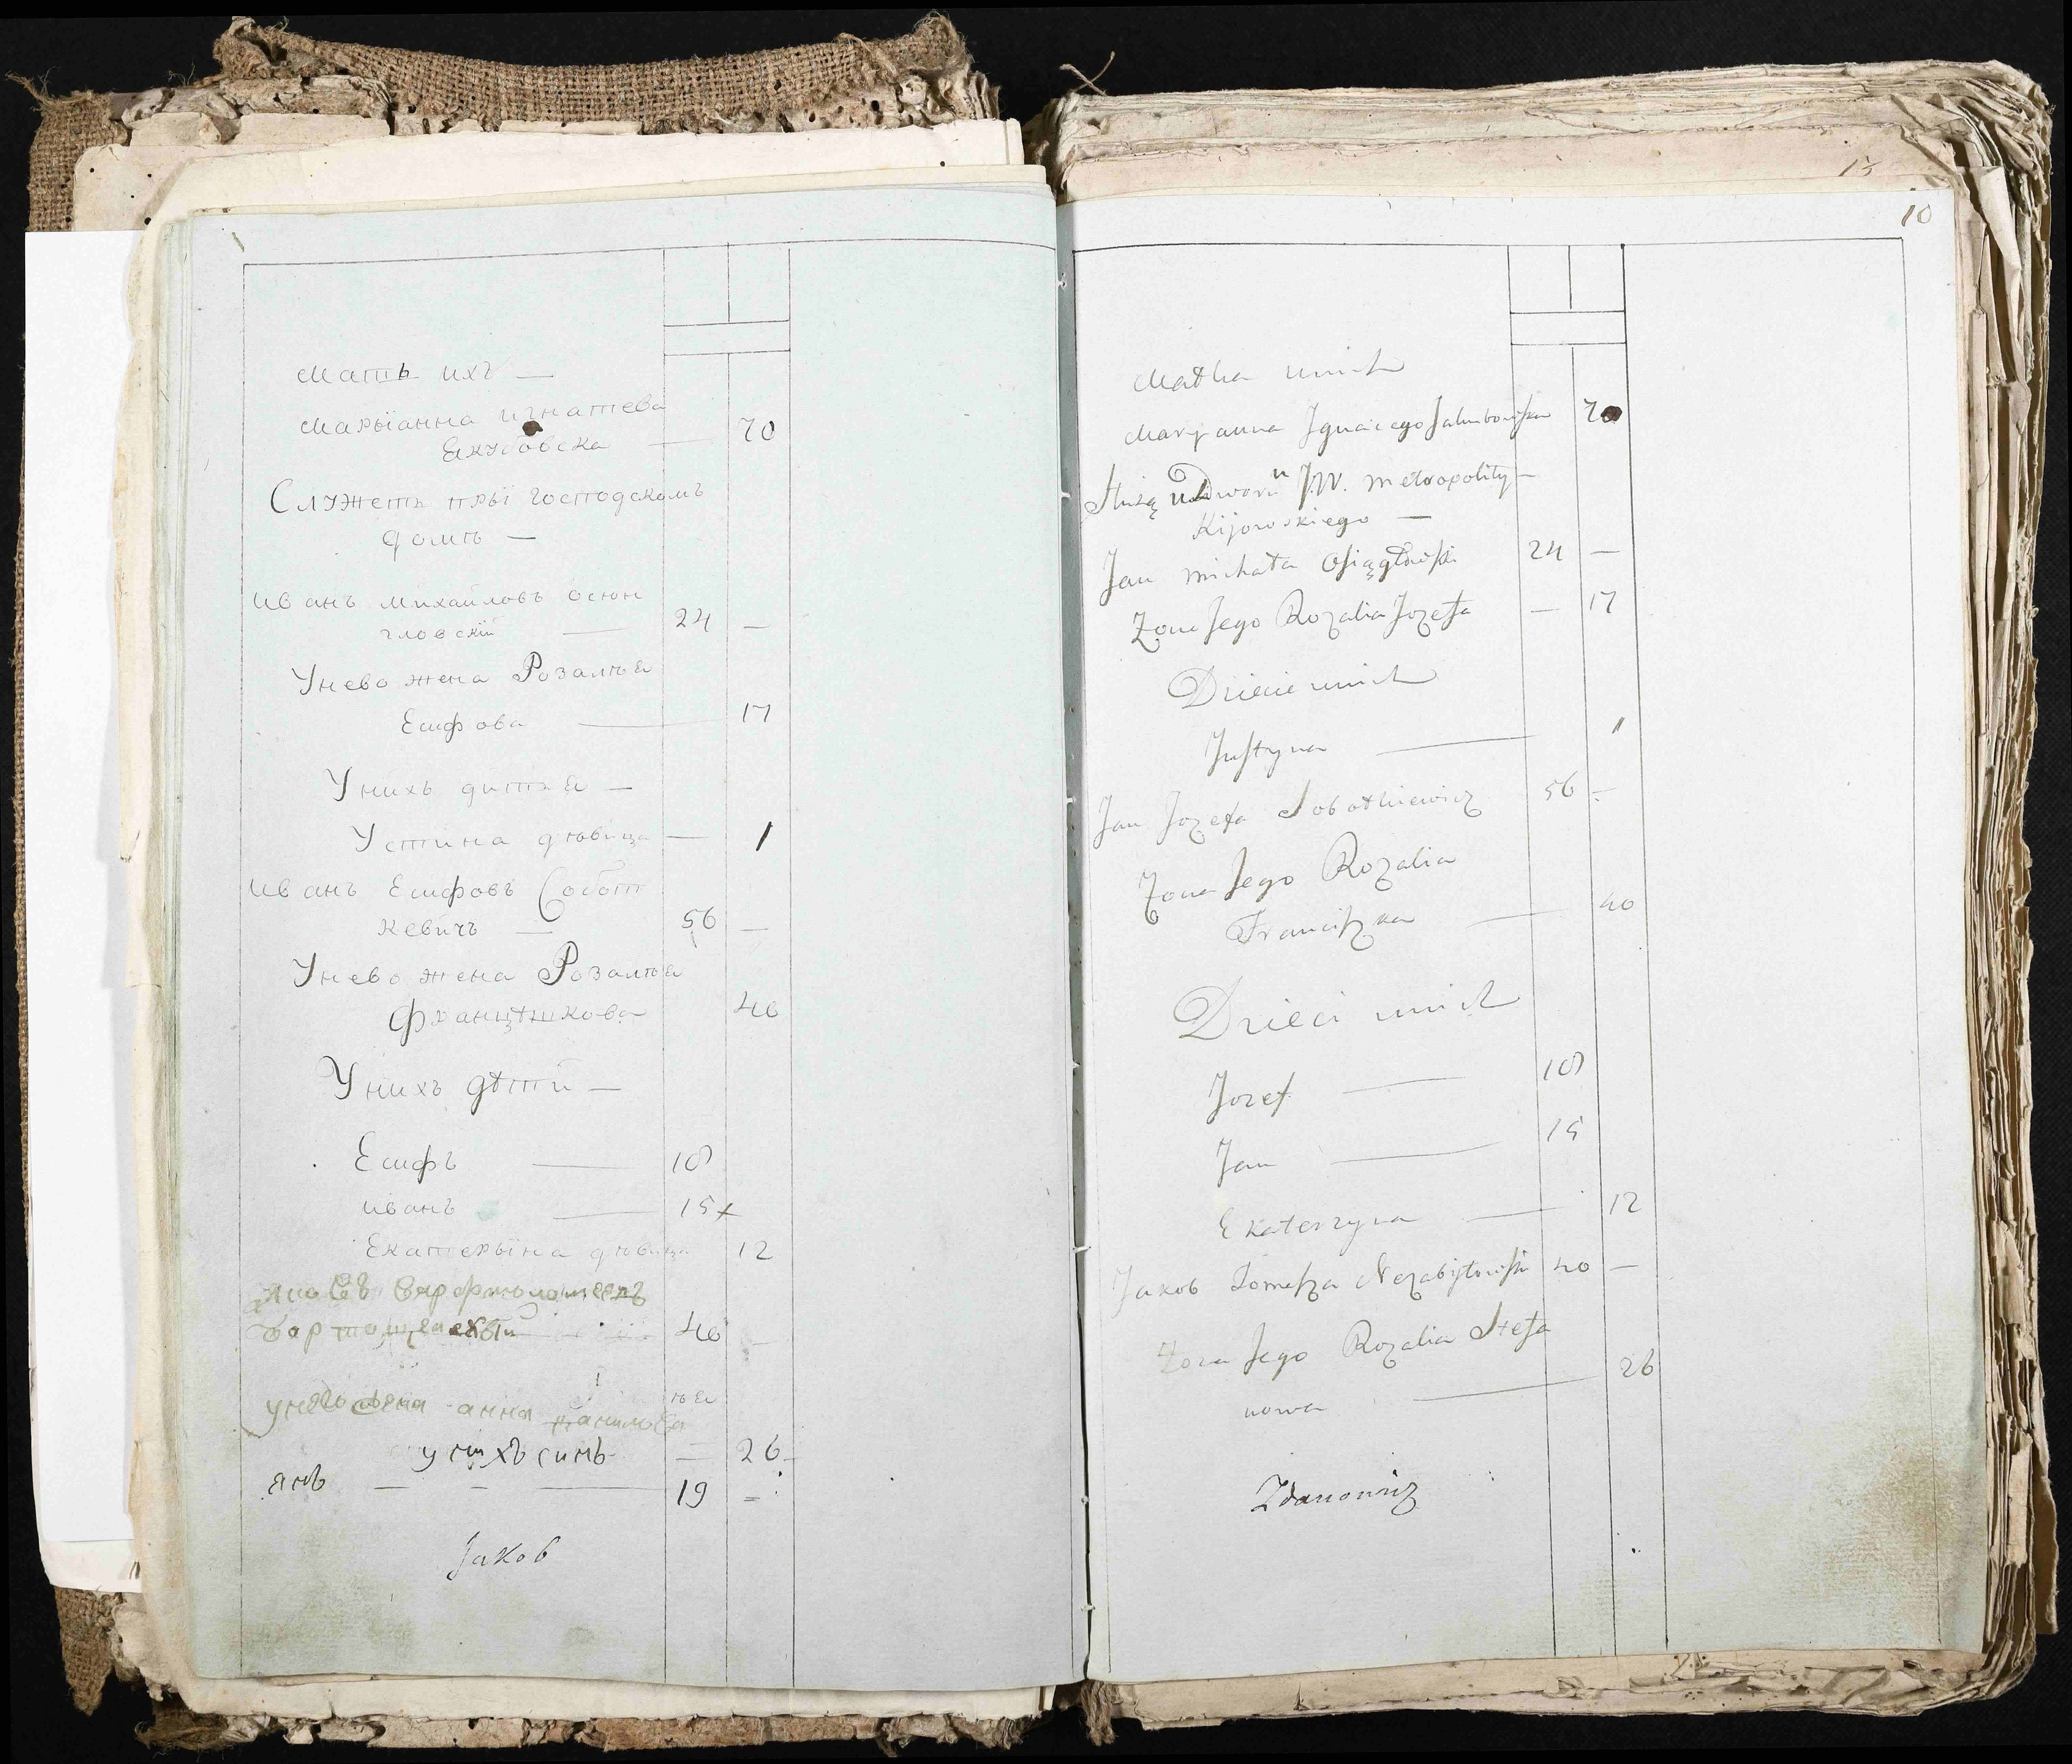 мать ихъ —
марыанна игнатева
Екубовска — 70
Служеть пры господскомъ
домѣ —
иванъ михайловъ осюн
гловскій — 24 —
Унево жена Розалѣя
Есифова — 17
Унихъ дитья —
Устина дювица — 1
иванъ Есифовъ Собот
кевичъ — 56 —
Унево жена Розалѣя
францѣшкова 40
Унихъ дѣти —
Есифъ — 18
иванъ — 15 x
Екатерына дювица 12
40
унего жена анна
унихъ синъ — 26
янъ — — — 19 =
Jakob
15
10
Matka unich
Maryanna Jgnacego Jakubowska 70
Służą u Dworu JW. metropolity —
Kijowskiego —
Jan michała Osięgłowski 24 —
Zona Jego Rozalia Jozefa — 17
Dziecie unich
Justyna — 1
Jan Jozefa Sobotkiewicz 56 —
Zona Jego Rozalia
Franciszka — 40
Dzieci unich
Jozef — 18
Jan — 15
Ekaterzyna — 12
Jakob Tomasza Nezabytowski 40 —
Zona Jego Rozalia Stefa
nowa — 26
Zdanowicz